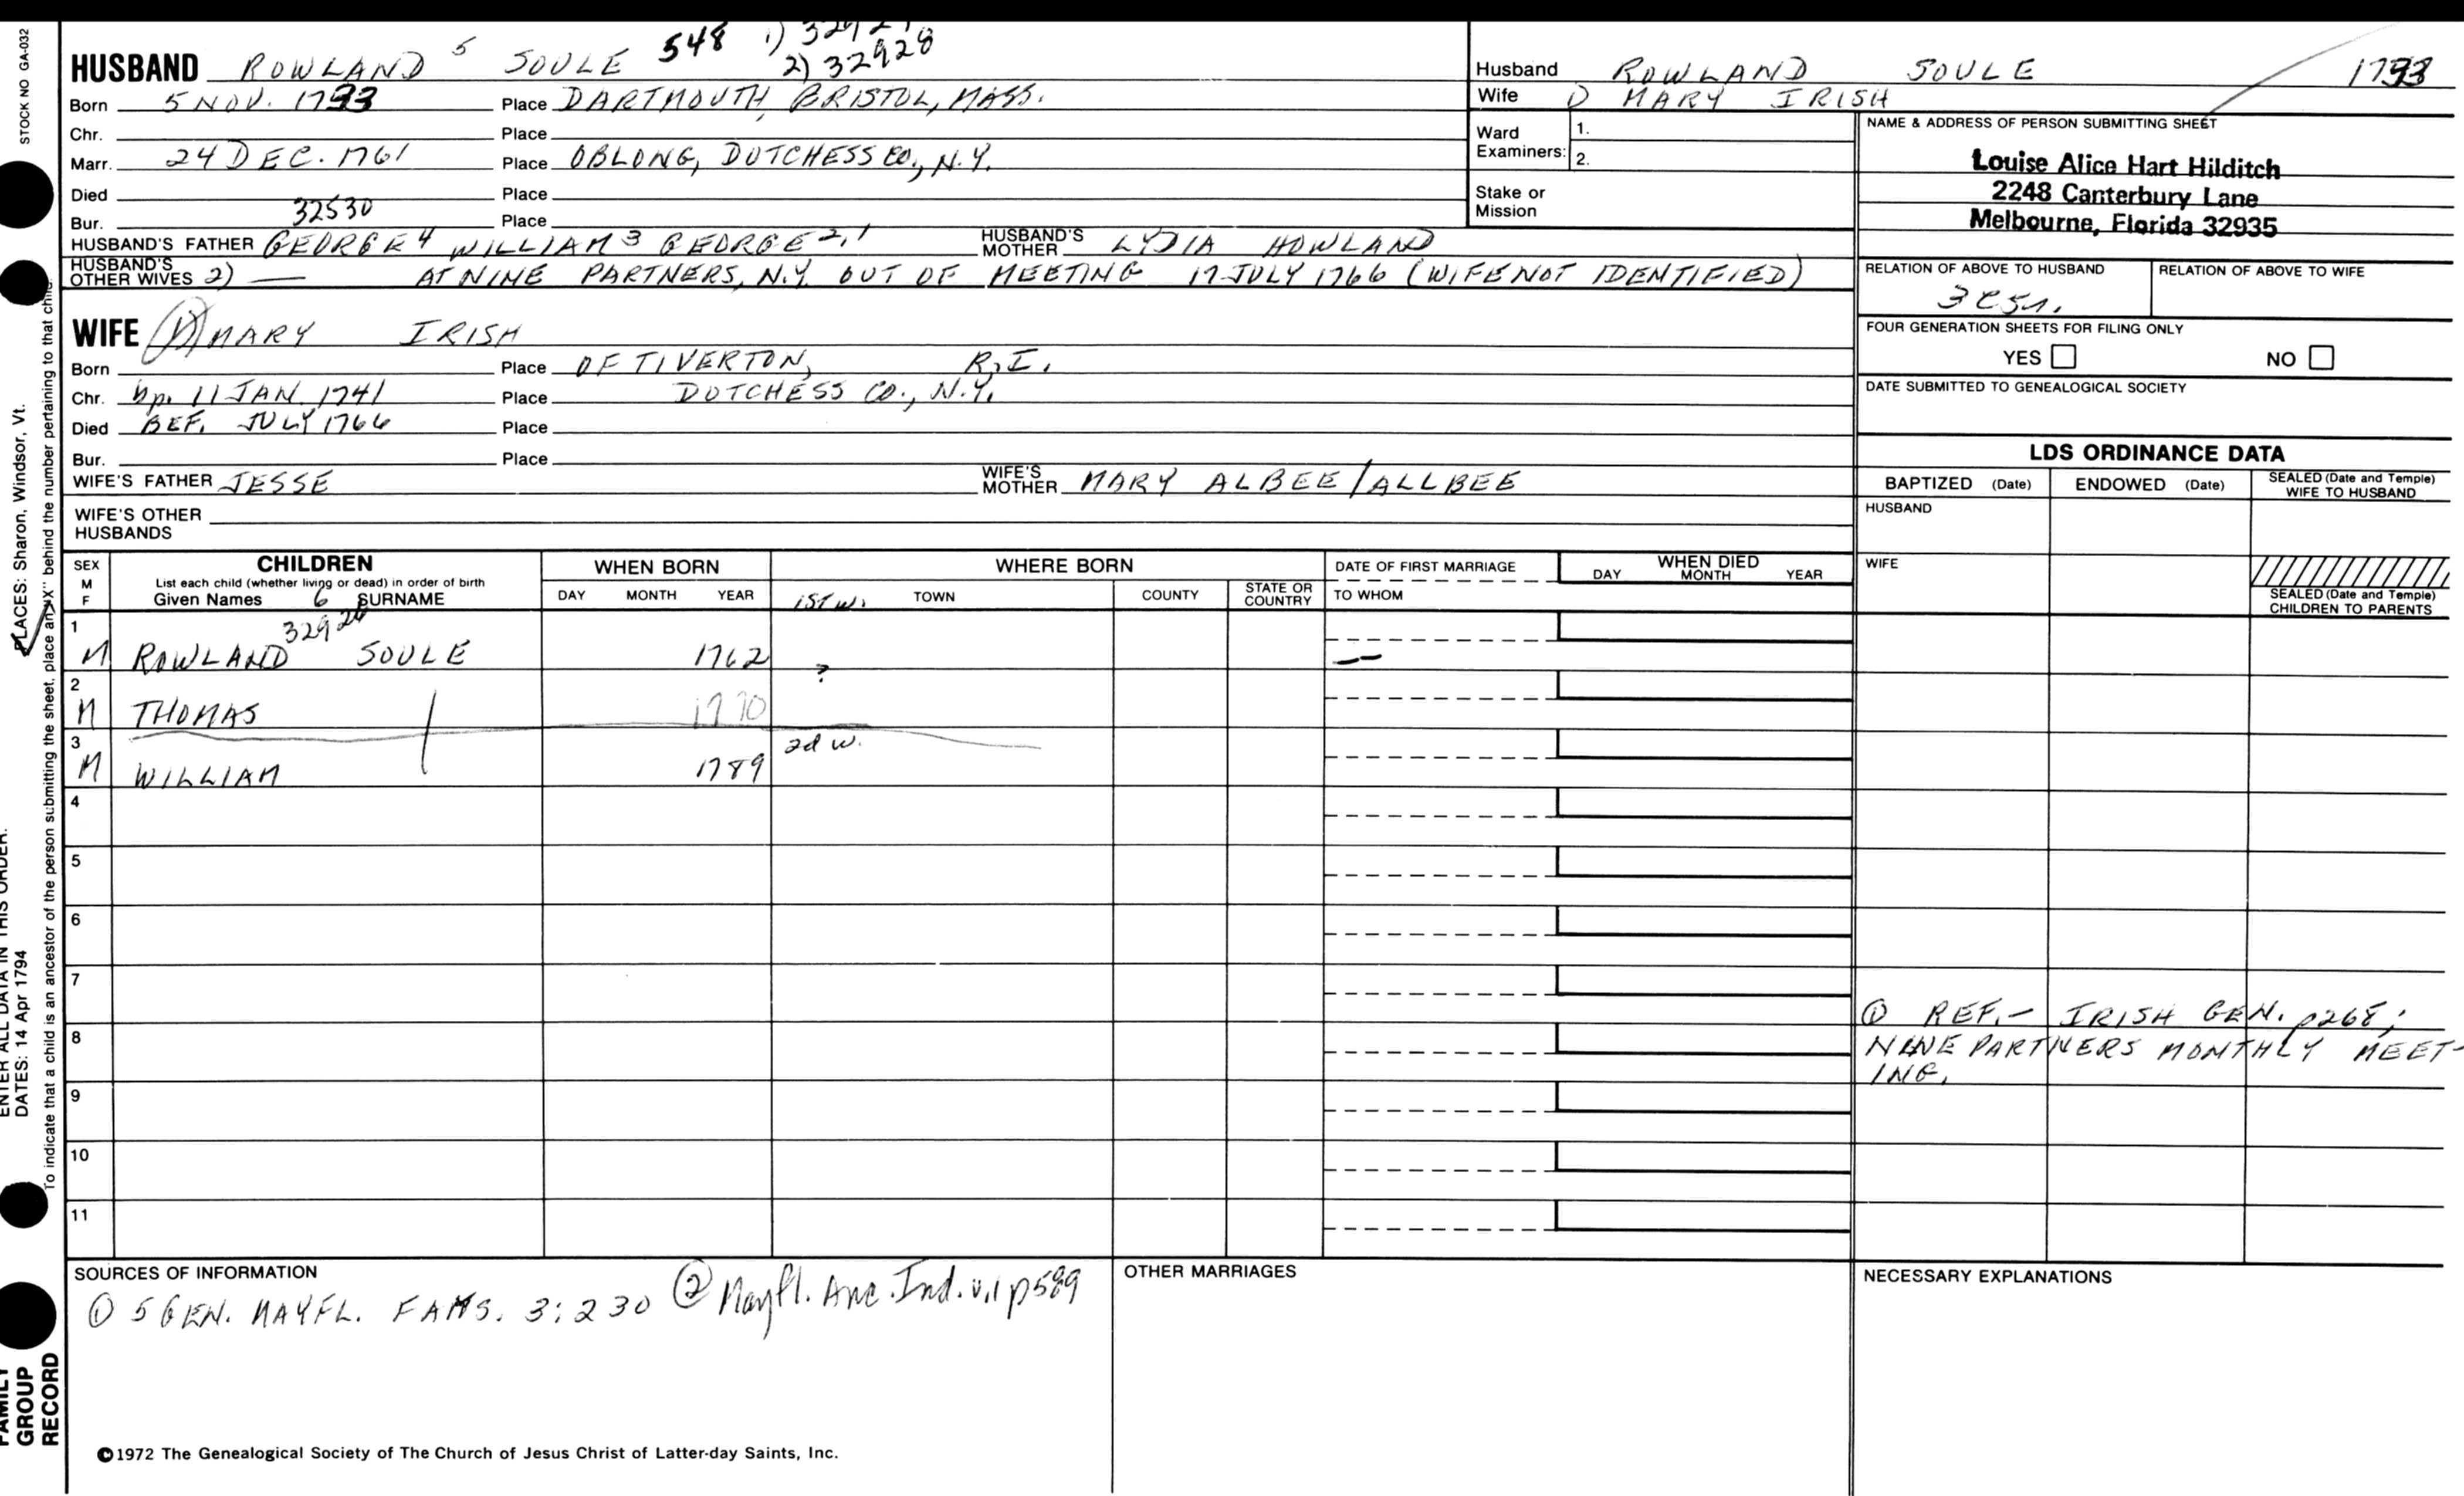 HUSBAND ROWLAND 5 SOULE 548 1) 2) 32928
Born 5 NOV. 1733 Place DARTMOUTH, BRISTOL, MASS.
Chr. Place
Marr. 24 DEC. 1761 Place OBLONG, DUTCHESS CO., N.Y.
Died Place
Bur. 32530 Place
HUSBAND'S FATHER GEORGE 4 WILLIAM 3 GEORGE 2,1 HUSBAND'S MOTHER LYDIA HOWLAND
HUSBAND'S OTHER WIVES 2) — AT NINE PARTNERS, N.Y. OUT OF MEETING 17 JULY 1766 (WIFE NOT IDENTIFIED)
WIFE 1) MARY IRISH
Born Place OF TIVERTON, R.I.
Chr. bp. 11 JAN. 1741 Place DUTCHESS CO., N.Y.
Died BEF. JULY 1766 Place
Bur. Place
WIFE'S FATHER JESSE WIFE'S MOTHER MARY ALBEE/ALLBEE
WIFE'S OTHER HUSBANDS
Husband ROWLAND SOULE 1733
Wife 1) MARY IRISH
Ward Examiners: 1.
2.
Stake or Mission
NAME & ADDRESS OF PERSON SUBMITTING SHEET
Louise Alice Hart Hilditch
2248 Canterbury Lane
Melbourne, Florida 32935
RELATION OF ABOVE TO HUSBAND RELATION OF ABOVE TO WIFE
FOUR GENERATION SHEETS FOR FILING ONLY
YES NO
DATE SUBMITTED TO GENEALOGICAL SOCIETY
LDS ORDINANCE DATA
BAPTIZED (Date) ENDOWED (Date) SEALED (Date and Temple) WIFE TO HUSBAND
HUSBAND
WIFE
SEALED (Date and Temple) CHILDREN TO PARENTS
SEX M F CHILDREN WHEN BORN WHERE BORN DATE OF FIRST MARRIAGE WHEN DIED
List each child (whether living or dead) in order of birth
Given Names 6 SURNAME DAY MONTH YEAR 1ST W. TOWN COUNTY STATE OR COUNTRY TO WHOM DAY MONTH YEAR
1 M ROWLAND SOULE 1762 —
2 M THOMAS 1770 ?
3 M WILLIAM 1789 2d w.
4
5
6
7
8
9
10
11
① REF.- IRISH GEN. p268;
NINE PARTNERS MONTHLY MEET-
ING.
SOURCES OF INFORMATION
① 5 GEN. MAYFL. FAMS. 3:230 ② Mayfl. Anc. Ind. v.1 p589
OTHER MARRIAGES
NECESSARY EXPLANATIONS
©1972 The Genealogical Society of The Church of Jesus Christ of Latter-day Saints, Inc.
STOCK NO GA-032
PLACES: Sharon, Windsor, Vt.
ENTER ALL DATA IN THIS ORDER:
DATES: 14 Apr 1794
To indicate that a child is an ancestor of the person submitting the sheet, place an "X" behind the number pertaining to that child.
FAMILY GROUP RECORD